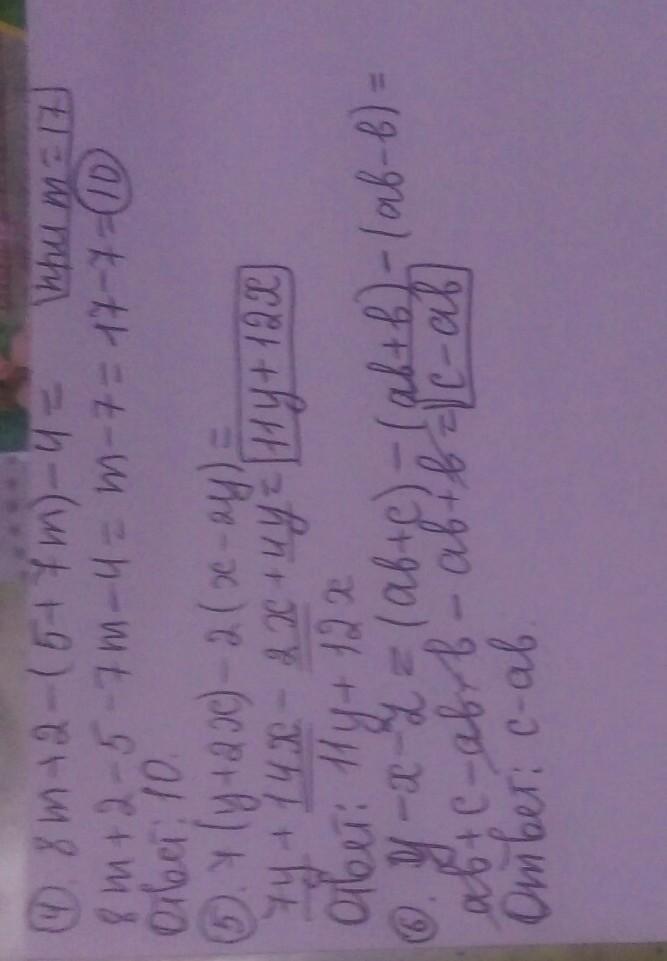 4. 8m+2-(5+7m)-4= при m=17
8m+2-5-7m-4=m-7=17-7=10
Ответ: 10.
5. 7(y+2x)-2(x-2y)=
7y+14x-2x+4y=11y+12x
Ответ: 11y+12x
6. y-x-z=(ab+c)-(ab+b)-(ab-b)=
ab+c-ab-b-ab+b=c-ab
Ответ: c-ab.